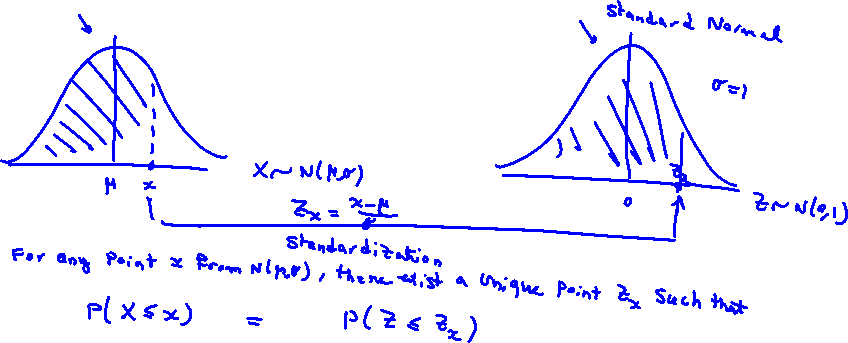 Standard Normal
σ=1
μ
x
X~N(μ,σ)
0
Zx
Z~N(0,1)
Zx = x-μ/σ
Standardization
For any Point x From N(μ,σ), there exist a Unique Point Zx Such that
P(X≤x) = P(Z≤Zx)